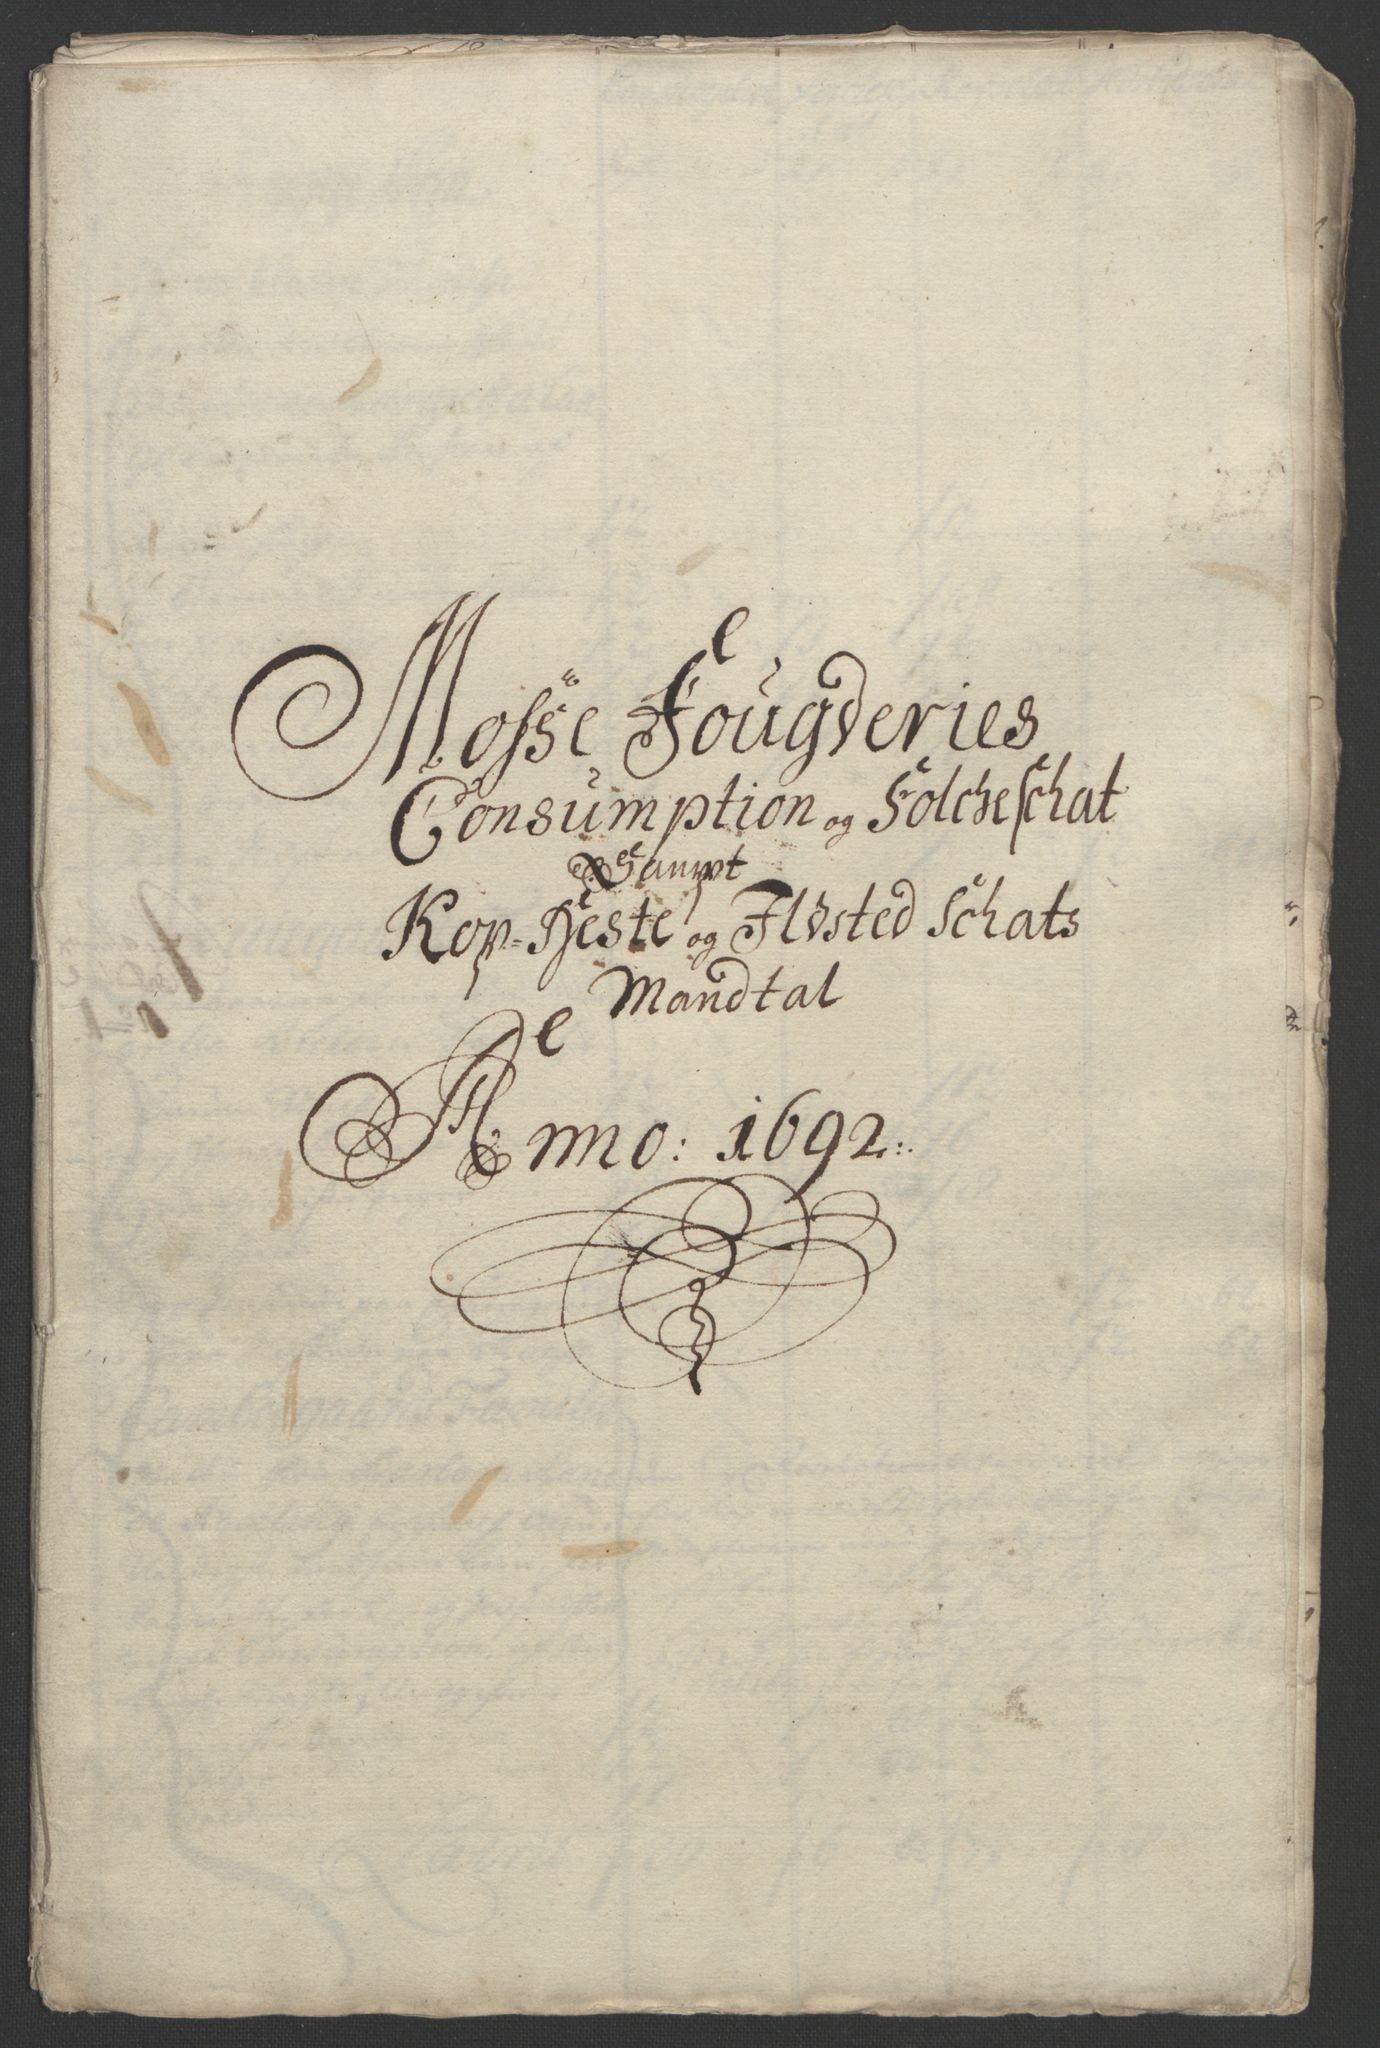 Mosse Fougderies
Consumption og Folcheschat
Sampt
Kop-Heste og Ildsted Schats
Mandtal
Anno: 1692:.